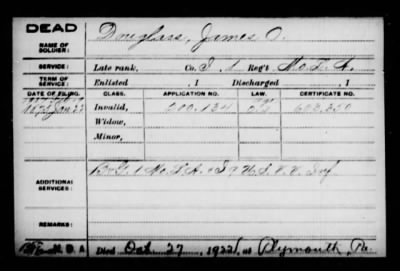 DEAD
NAME OF SOLDIER: Douglass, James O.
SERVICE: Late rank, Co. I 1 Reg't Mo. L. A.
TERM OF SERVICE: Enlisted , 1 Discharged , 1
DATE OF FILING. CLASS. APPLICATION NO. LAW. CERTIFICATE NO.
1875 Jan 27 Invalid, 200.134
Widow,
Minor,
ADDITIONAL SERVICES: 1 Mo. L. A.
REMARKS:
Died Oct 27, 1922, at Plymouth, Pa.